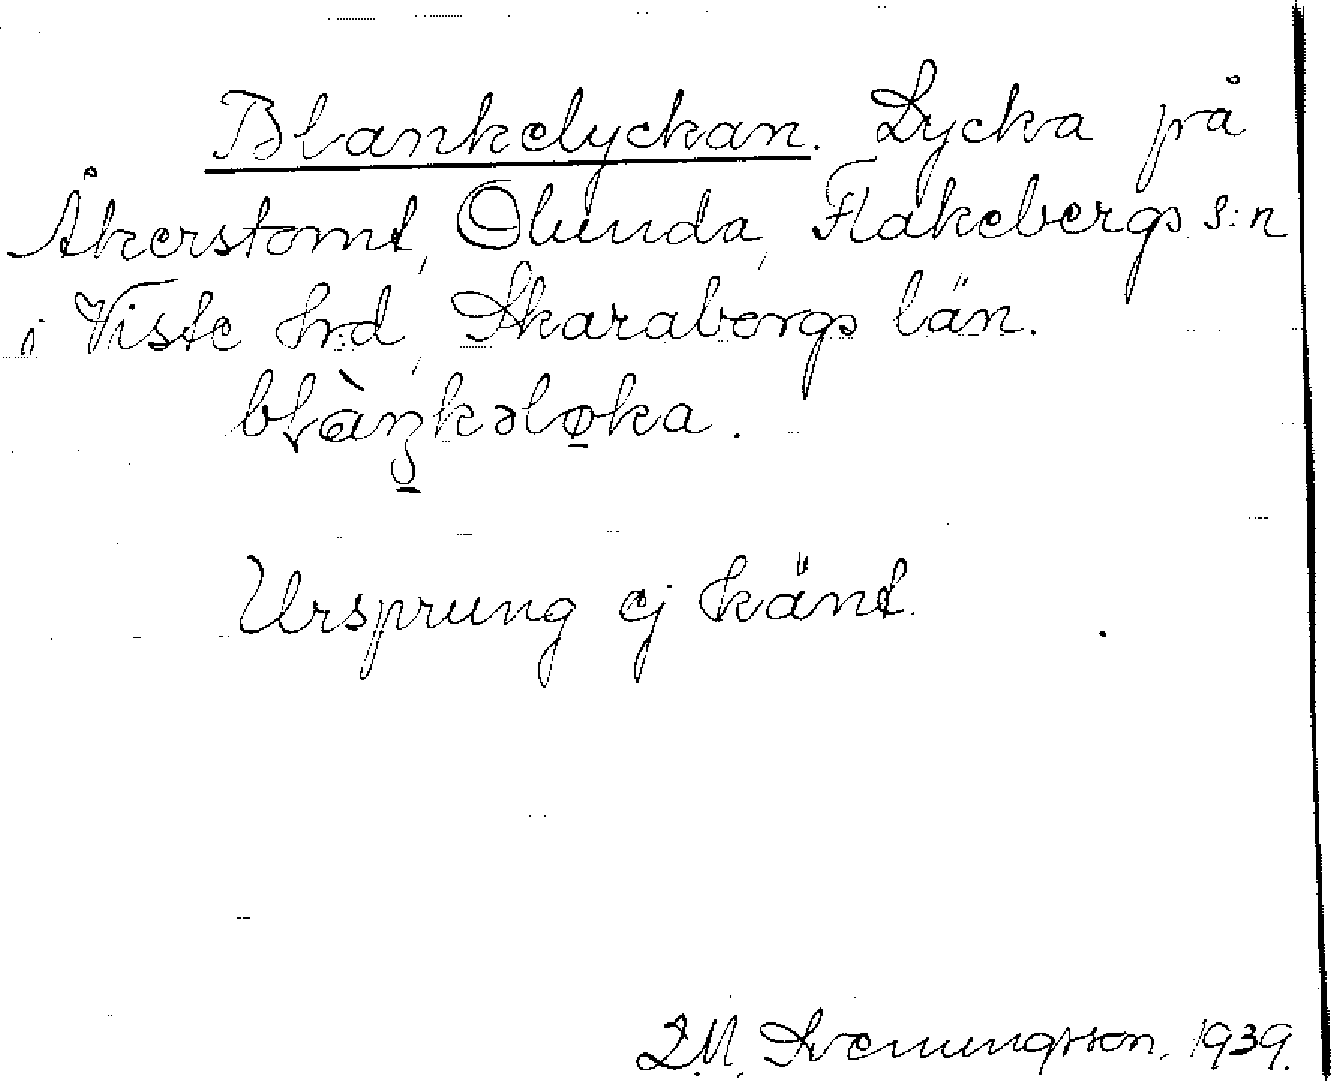 Blankelyckan. Lycka på
Åkerstomt, Olunda, Flakebergs s:n
i Viste hrd, Skaraborgs län.
blàŋkəløka.
Ursprung ej känt.
D.M. Svenungsson. 1939.